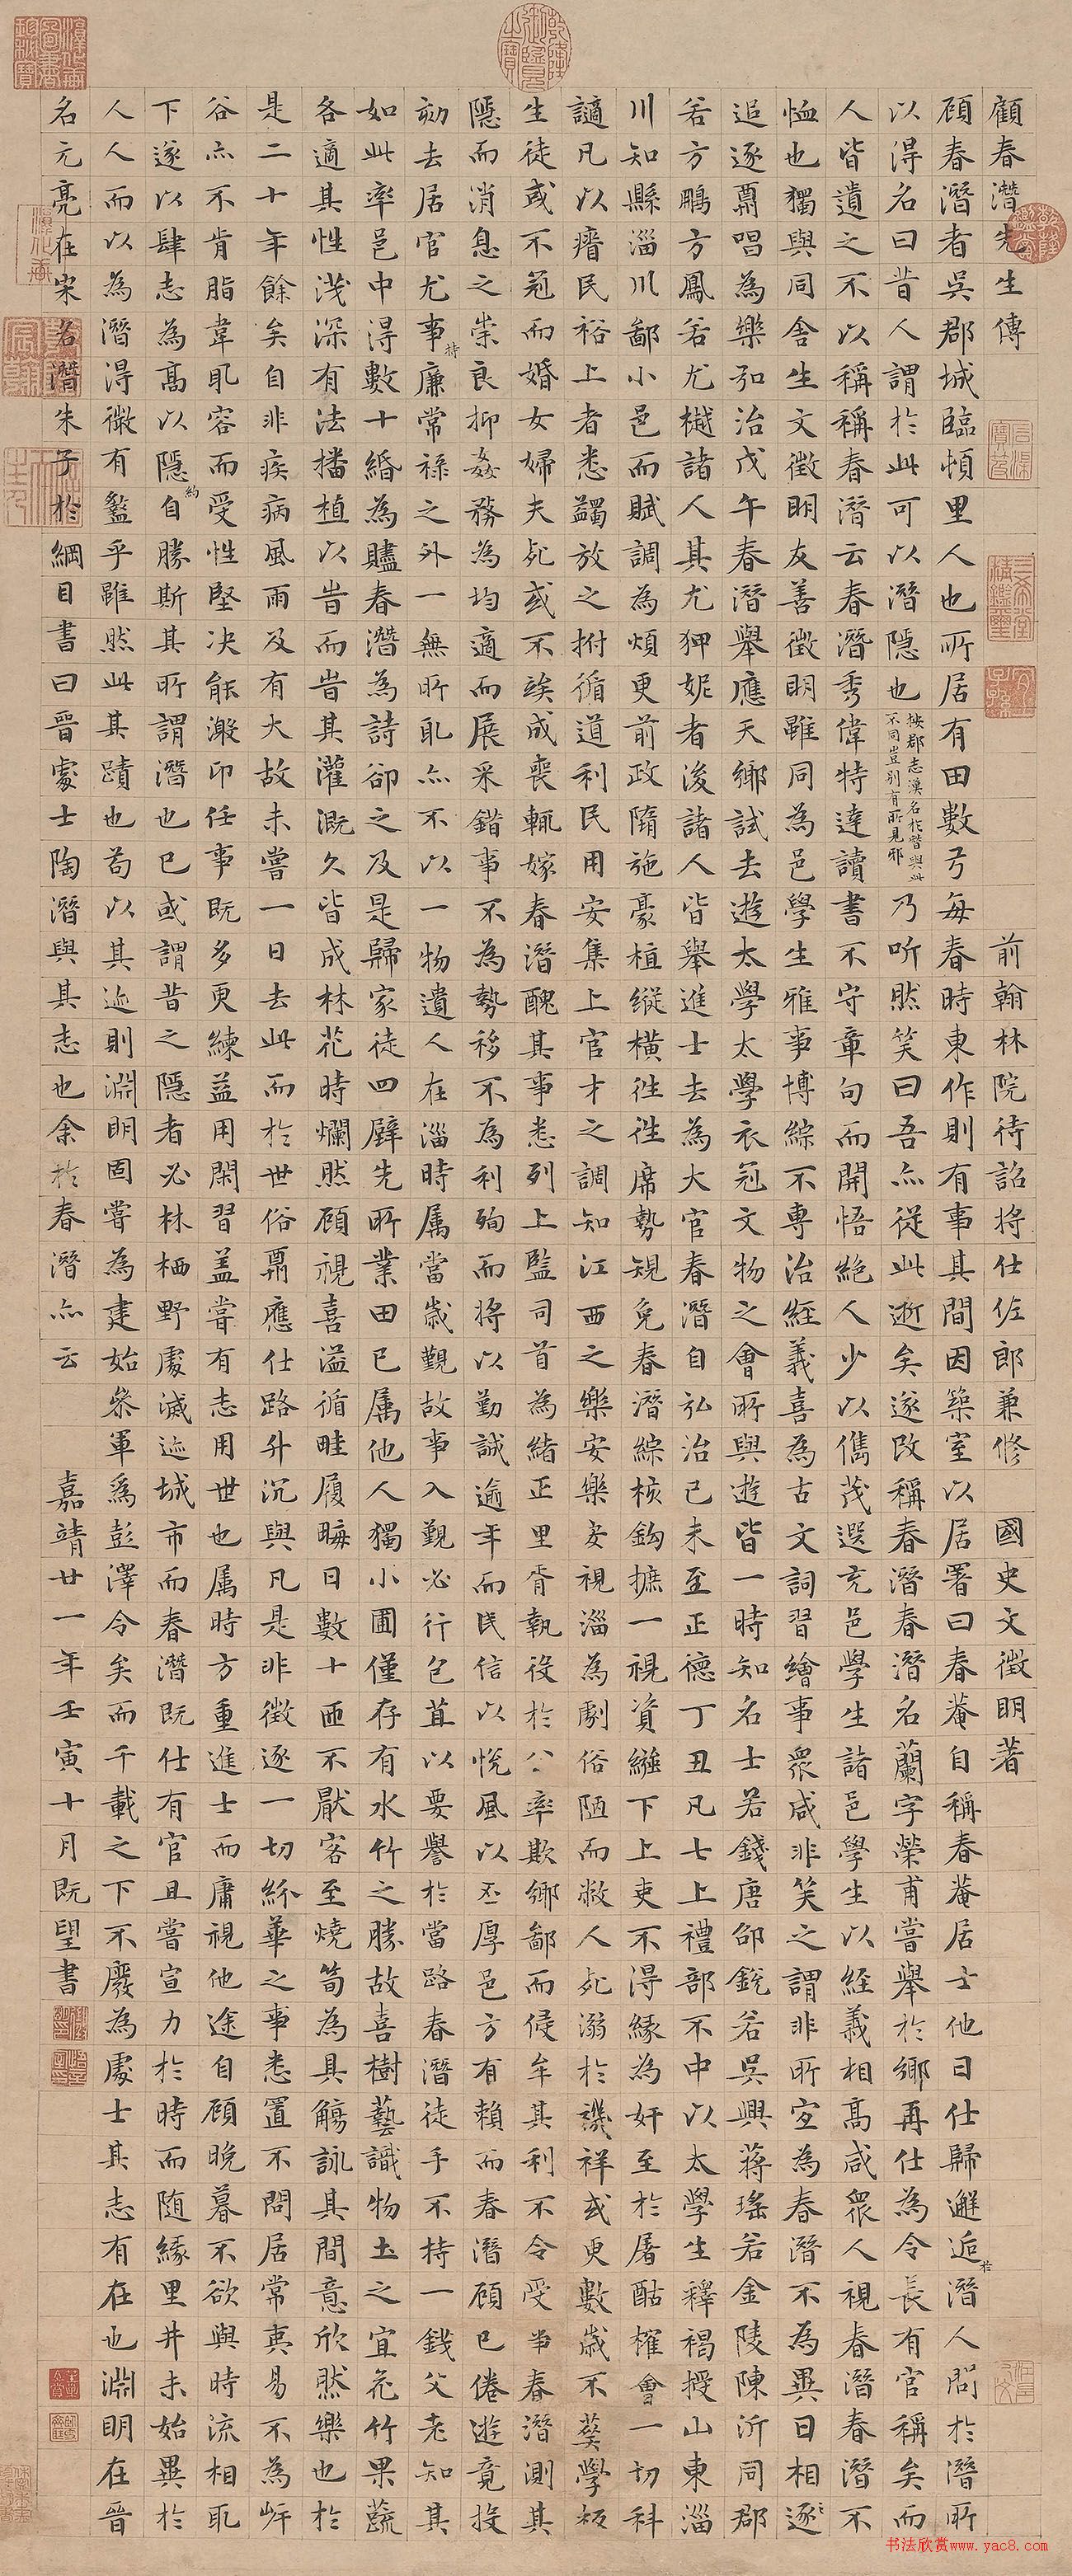 顧春潛先生傳　前翰林院待詔將仕佐郎兼修　國史文徵明著
顧春潛者吳郡城臨頓里人也所居有田數弓每春時東作則有事其間因築室以居署曰春菴自稱春菴居士他日仕歸邂逅於潛人問於潛所
以得名曰昔人謂於此可以潛隱也
按郡志漢名於朁與此
不同豈別有所見邪
乃听然笑曰吾亦從此逝矣遂改稱春潛春潛名蘭字榮甫嘗舉於鄉再仕為令長有官稱矣而
人皆遺之不以稱稱春潛云春潛秀偉特達讀書不守章句而開悟絕人少以儁茂選充邑學生諸邑學生以經義相高咸眾人視春潛春潛不
恤也獨與同舍生文徵明友善徵明雖同為邑學生雅事博綜不專治經義喜為古文詞習繪事眾咸非笑之謂非所宜為春潛不為異日相
追逐鬻唱為樂弘治戊午春潛舉應天鄉試去遊太學太學衣冠文物之會所與遊皆一時知名士若錢唐邵銳若吳興蔣瑤若金陵陳沂同郡
若方鵬方鳳若尤樾諸人其尤狎妮者後諸人皆舉進士去為大官春潛自弘治己未至正德丁丑凡七上禮部不中以太學生釋褐授山東淄
川知縣淄川鄙小邑而賦調為煩更前政隋施豪植縱橫往往席勢規免春潛綜核鉤摭一視資緪下上吏不得緣為奸至於屠酤榷會一切科
讁凡以瘠民裕上者悉蠲放之拊循道利民用安集上官才之調知江西之樂安樂安視淄為劇俗陋而敝人死溺於譏祥或更數歲不葬學校
生徒或不冠而婚女婦夫死或不竢成喪輒嫁春潛醜其事悉列上監司首為緒正里胥執役於公率欺鄉鄙而侵牟其利不令受乎春潛測其
隱而消息之崇良抑姦務為均適而展采錯事不為勢移不為利殉而將以勤誠逾年而民信以悅風以丕厚邑方有賴而春潛顧已倦遊竟投
劾去居官尤事持廉常祿之外一無所取亦不以一物遺人在淄時属當歲覲故事入覲必行包苴以要譽於當路春潛徒手不持一錢父老知其
如此率邑中得數十緡為贐春潛為詩卻之及是歸家徒四壁先所業田已属他人獨小圃僅存有水竹之勝故喜樹藝識物土之宜花竹果蔬
各適其性淺深有法播植以旹而旹其灌溉久皆成林花時爛然顧視喜溢循畦履畮日數十匝不厭客至燒筍為具觴詠其間意欣然樂也於
是二十年餘矣自非疾病風雨及有大故未嘗一日去此而於世俗鬻應仕路升沉與凡是非徵逐一切紛華之事悉置不問居常夷易不為岸
谷亦不肯脂韋取容而受性堅決能潑卬任事既多更練益用閑習蓋嘗有志用世也属時方重進士而庸視他途自顧晚暮不欲與時流相取
下遂以肆志為高以隱自約勝斯其所謂潛也已或謂昔之隱者必林栖野處滅迹城市而春潛既仕有官且嘗宣力於時而隨緣里井未始異於
人人而以為潛得微有盭乎雖然此其蹟也苟以其迹則淵明固嘗為建始參軍為彭澤令矣而千載之下不廢為處士其志有在也淵明在晉
名元亮在宋名潛朱子於綱目書曰晉處士陶潛與其志也余於春潛亦云　嘉靖廿一年壬寅十月既望書
书法欣赏www.yac8.com